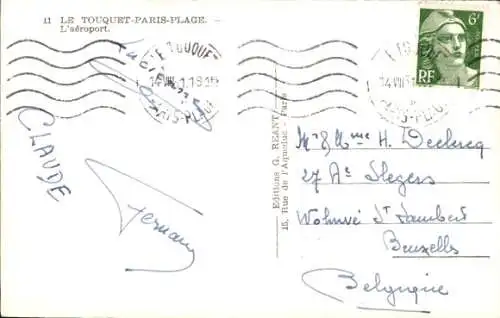 11 LE TOUQUET-PARIS-PLAGE. —
L'aéroport.
LE TOUQUET
14 VIII
PARIS-PLAGE
Lucienne
CLAUDE
Fernand
Editions G. REANT
15, Rue de l'Aqueduc - Paris
6F
RF
PARIS-PLAGE
Mr & Mme H. Declercq
27 Av. Slegers
Woluwé St Lambert
Bruxelles
Belgique